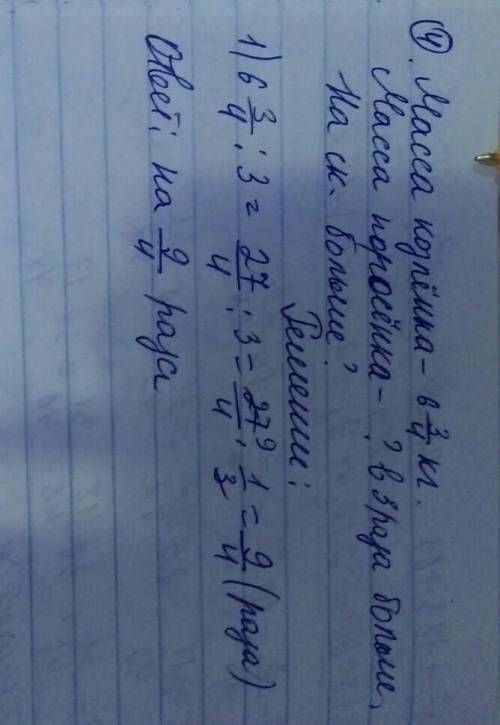 ④. Масса козлёнка - 6 3/4 кг.
Масса поросёнка - ? в 3 раза больше,
На ск. больше?
Решении:
1) 6 3/4 : 3 = 27/4 : 3 = 27 9/4 · 1/3 = 9/4 (раза)
Ответ: на 9/4 раза